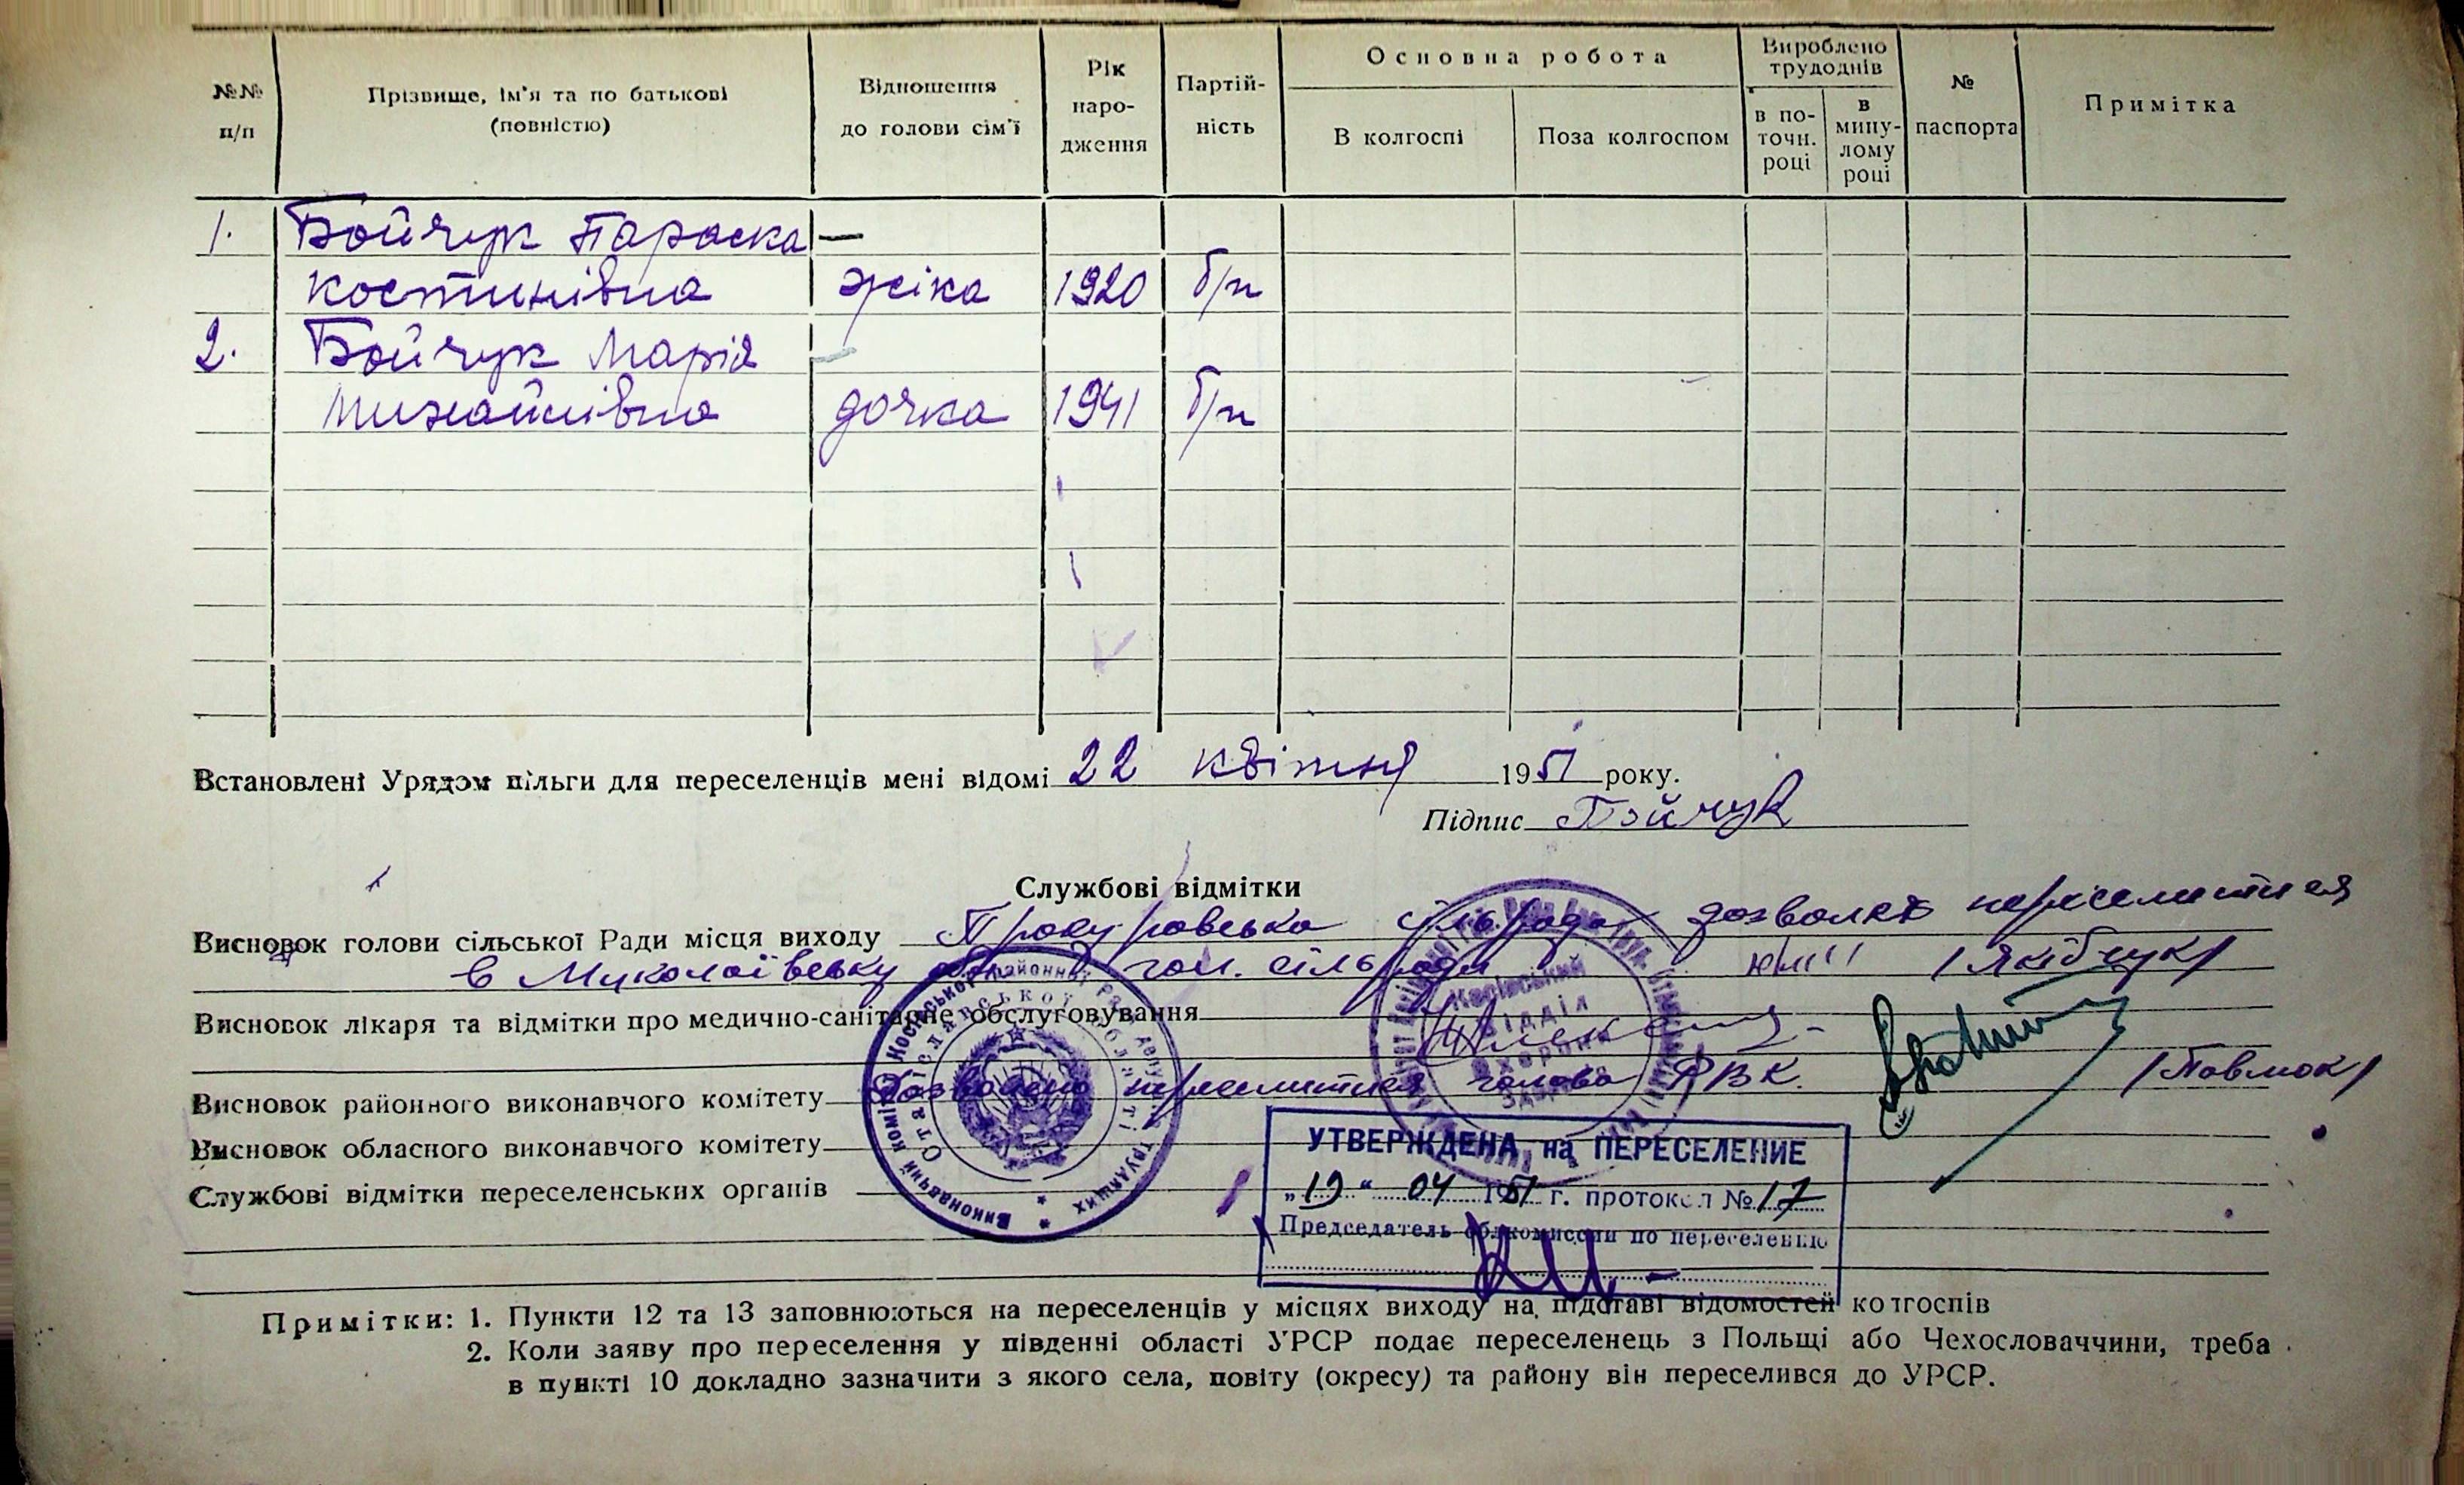 №№ п/п
Прізвище, ім'я та по батькові (повністю)
Відношення до голови сім'ї
Рік народження
Партійність
Основна робота
В колгоспі
Поза колгоспом
Вироблено трудоднів
в поточн. році
в минулому році
№ паспорта
Примітка
1. Бойчук Параска —
костинівна жіка 1920 б/п
2. Бойчук Марія —
михайлівна дочка 1941 б/п
Встановлені Урядом пільги для переселенців мені відомі 22 квітня 1951 року.
Підпис Бойчук
Службові відмітки
Висновок голови сільської Ради місця виходу сільрада дозволяє переселитися
в Миколаївську обл. гол. сільради /Якібчук/
Висновок лікаря та відмітки про медично-санітарне обслуговування
Висновок районного виконавчого комітету Дозволено переселитися голова РВК. /Павлюк/
Висновок обласного виконавчого комітету
Службові відмітки переселенських органів
УТВЕРЖДЕНА на ПЕРЕСЕЛЕНИЕ
„19“ 04 1951 г. протокол № 17
Председатель облкомиссии по переселению
Примітки: 1. Пункти 12 та 13 заповнюються на переселенців у місцях виходу на підставі відомостей колгоспів
2. Коли заяву про переселення у південні області УРСР подає переселенець з Польщі або Чехословаччини, треба
в пункті 10 докладно зазначити з якого села, повіту (окресу) та району він переселився до УРСР.